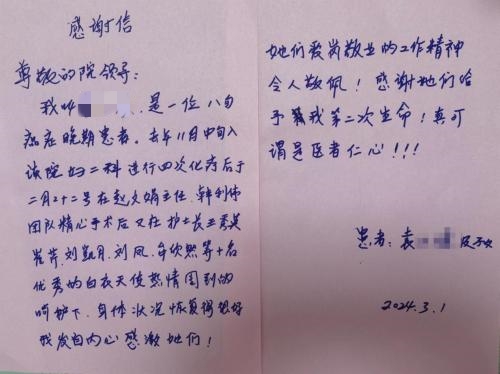 感谢信
尊敬的院领导：
我叫 是一位八旬
癌症晚期患者。去年11月中旬入
该院妇二科进行四次化疗后于
二月二十二号在赵文娟主任、韩利伟
团队精心手术后又在护士长王秀英
刘凯月、刘凤、 等十名
优秀的白衣天使热情周到的
呵护下、身体状况恢复得很好
我发自内心感激她们！
她们爱岗敬业的工作精神
令人敬佩！感谢她们给
予我第二次生命！真可
谓是医者仁心！！！
患者：袁 及子女
2024.3.1